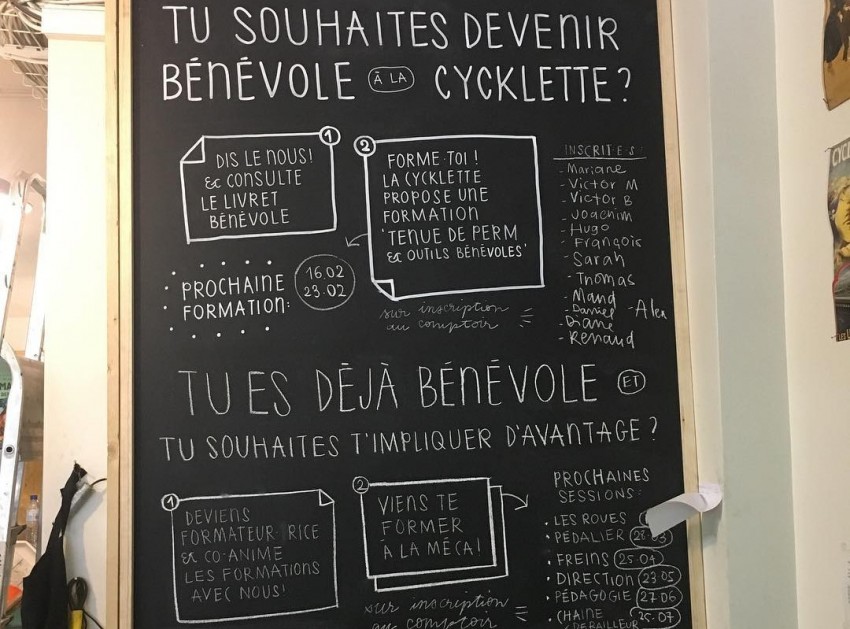 TU SOUHAITES DEVENIR
BÉNÉVOLE À LA CYCKLETTE?
1
DIS LE NOUS!
& CONSULTE
LE LIVRET
BÉNÉVOLE
2
FORME-TOI!
LA CYCKLETTE
PROPOSE UNE
FORMATION
'TENUE DE PERM
& OUTILS BÉNÉVOLES'
PROCHAINE
FORMATION:
16.02
23.02
sur inscription
au comptoir
INSCRIT·E·S:
- Mariane
- Victor M
- Victor B
- Joachim
- Hugo
- François
- Sarah
- Thomas
- Maud
- Daniel - Alex
- Diane
- Renaud
TU ES DÉJÀ BÉNÉVOLE ET
TU SOUHAITES T'IMPLIQUER D'AVANTAGE?
1
DEVIENS
FORMATEUR·RICE
& CO-ANIME
LES FORMATIONS
AVEC NOUS!
2
VIENS TE
FORMER
À LA MÉCA!
sur inscription
au comptoir
PROCHAINES
SESSIONS:
• LES ROUES
• PÉDALIER 28.03
• FREINS 25.04
• DIRECTION 23.05
• PÉDAGOGIE 27.06
• CHAINE 25.07
DERAILLEUR